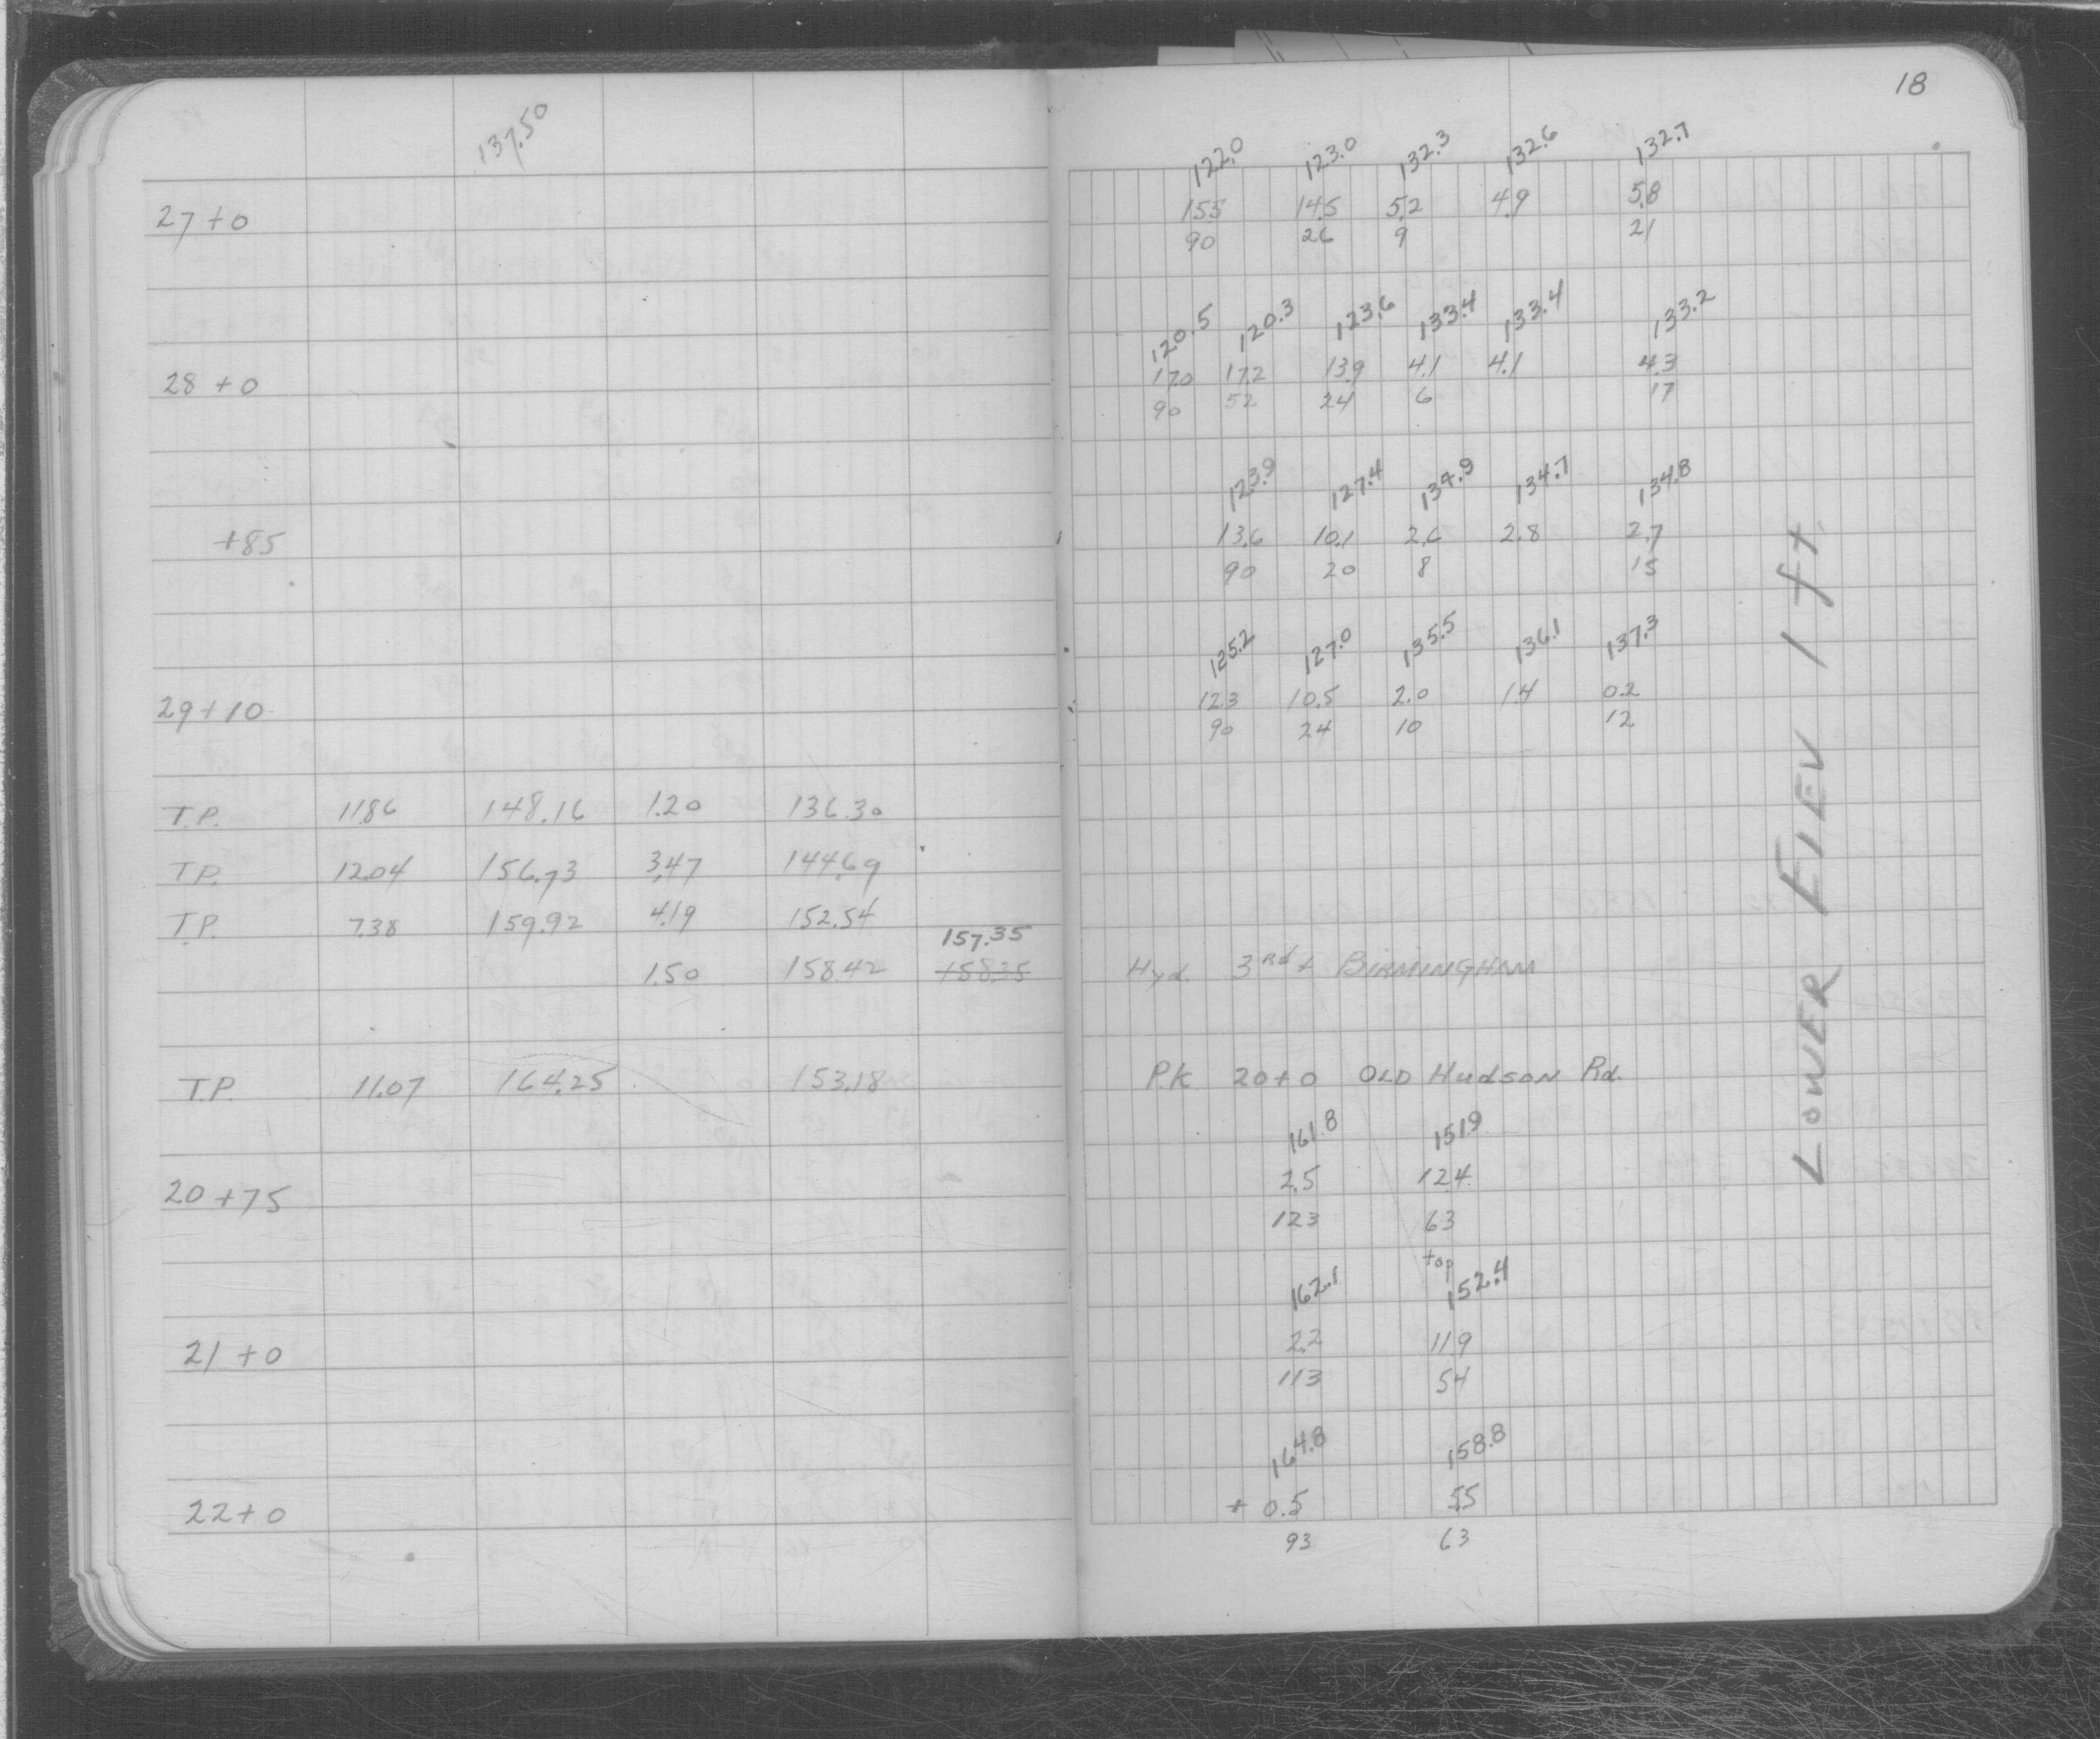 18
137.50
122.0 123.0 132.3 132.6 132.7
27+0 15.5 14.5 5.2 4.9 5.8
90 26 9 21
120.5 120.3 123.6 133.4 133.4 133.2
28+0 17.0 17.2 13.9 4.1 4.1 4.3
90 52 24 6 17
123.9 127.4 134.9 134.7 134.8
+85 13.6 10.1 2.6 2.8 2.7
90 20 8 15
125.2 127.0 135.5 136.1 137.3
29+10 12.3 10.5 2.0 1.4 0.2
90 24 10 12
T.P. 11.86 148.16 1.20 136.30
T.P. 12.04 156.73 3.47 144.69
T.P. 7.38 159.92 4.19 152.54
157.35
1.50 158.42 158.35 Hyd. 3Rd + BIRMINGHAM
T.P. 11.07 164.25 153.18 P.K 20+0 OLD HudsoN Rd.
161.8 151.9
20+75 2.5 12.4
123 63
top
162.1 152.4
21+0 2.2 11.9
113 54
164.8 158.8
22+0 + 0.5 5.5
93 63
LOWER ElEV 1 ft.